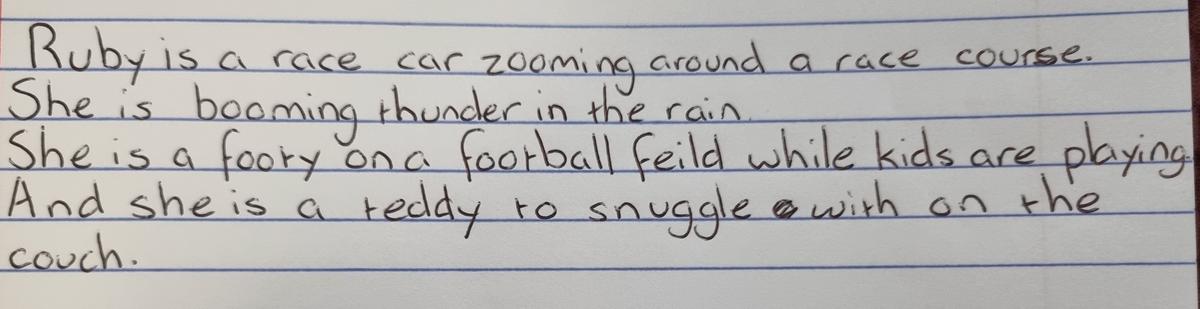 Ruby is a race car zooming around a race course.
She is booming thunder in the rain.
She is a footy on a football feild while kids are playing.
And she is a teddy to snuggle with on the
couch.